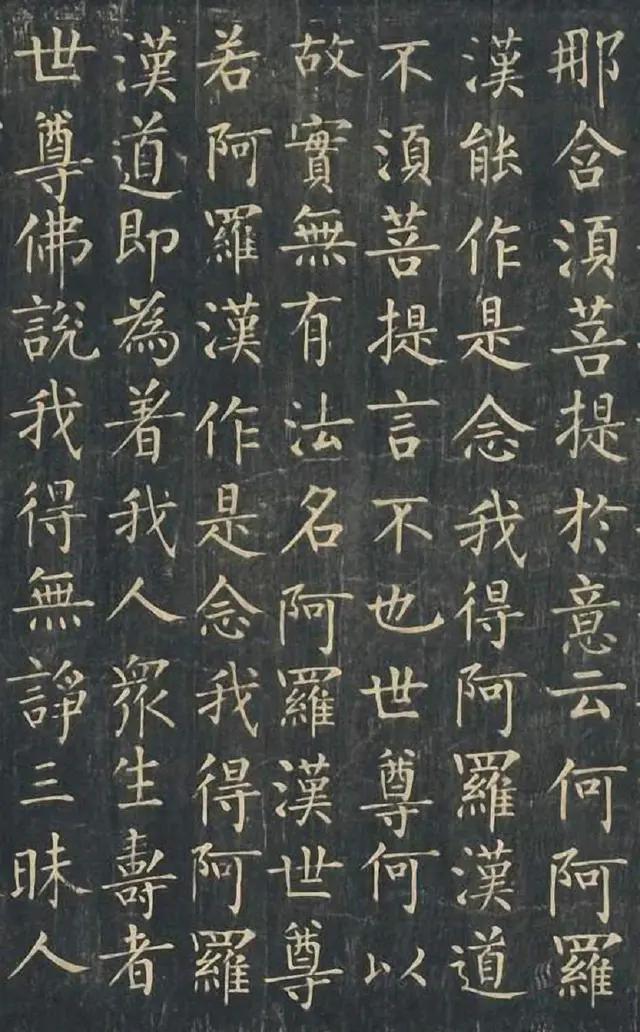 那含須菩提於意云何阿羅
漢能作是念我得阿羅漢道
不須菩提言不也世尊何以
故實無有法名阿羅漢世尊
若阿羅漢作是念我得阿羅
漢道即為著我人眾生壽者
世尊佛說我得無諍三昧人